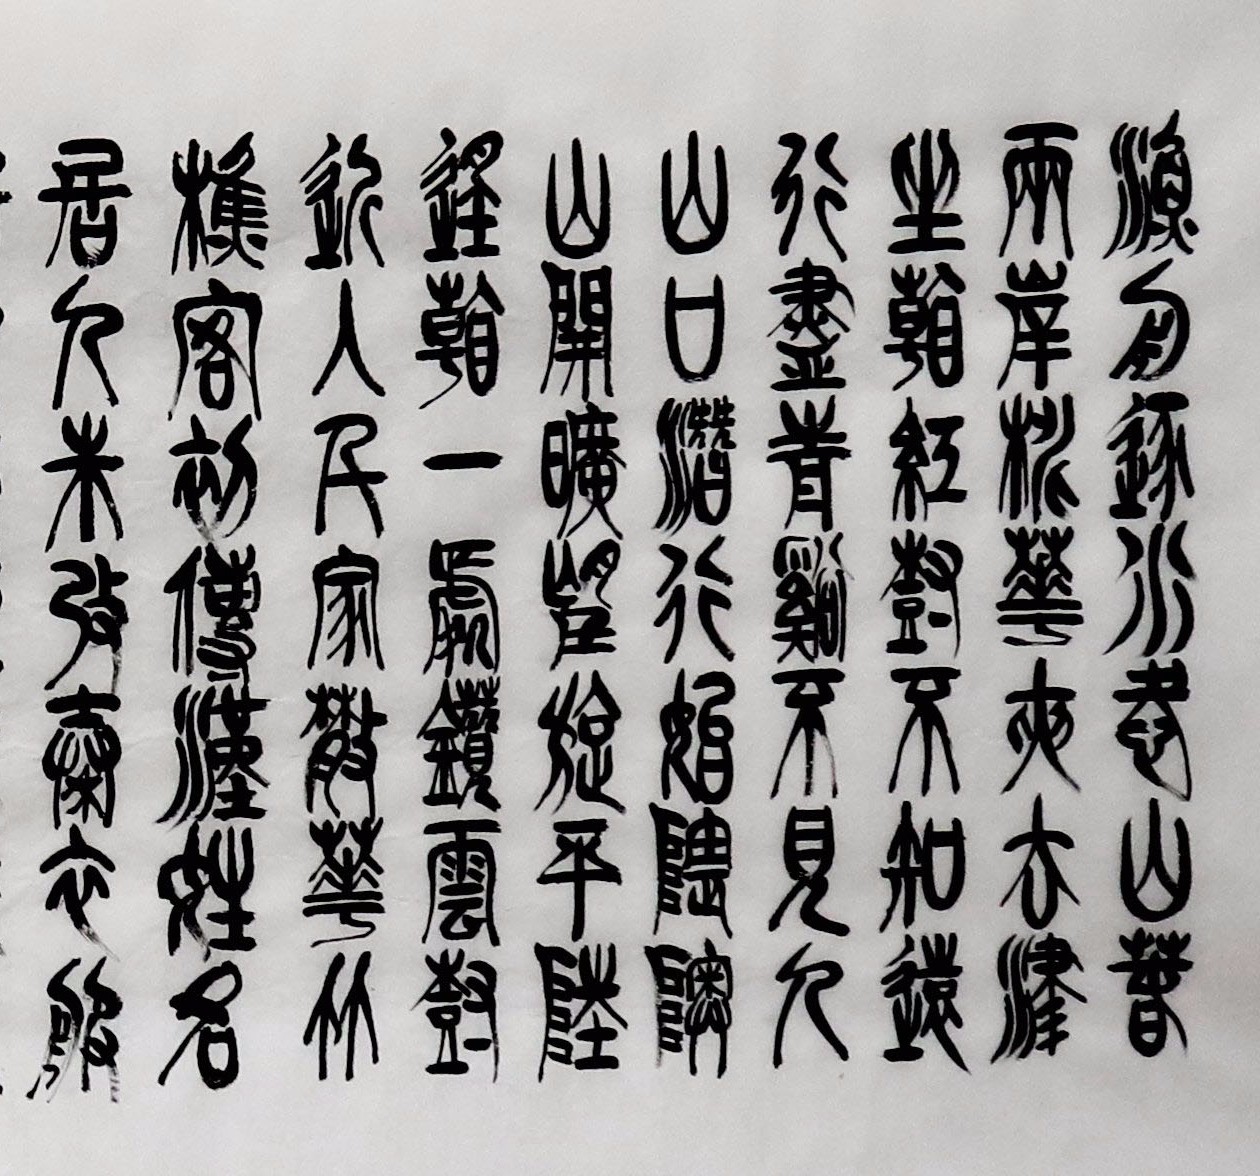 漁舟逐水愛山春
兩岸桃華夾去津
坐看紅樹不知遠
行盡青谿不見人
山口潛行始隈隩
山開曠望旋平陸
遙看一處鑽雲樹
近入千家散華竹
樵客初傳漢姓名
居人未改秦衣服